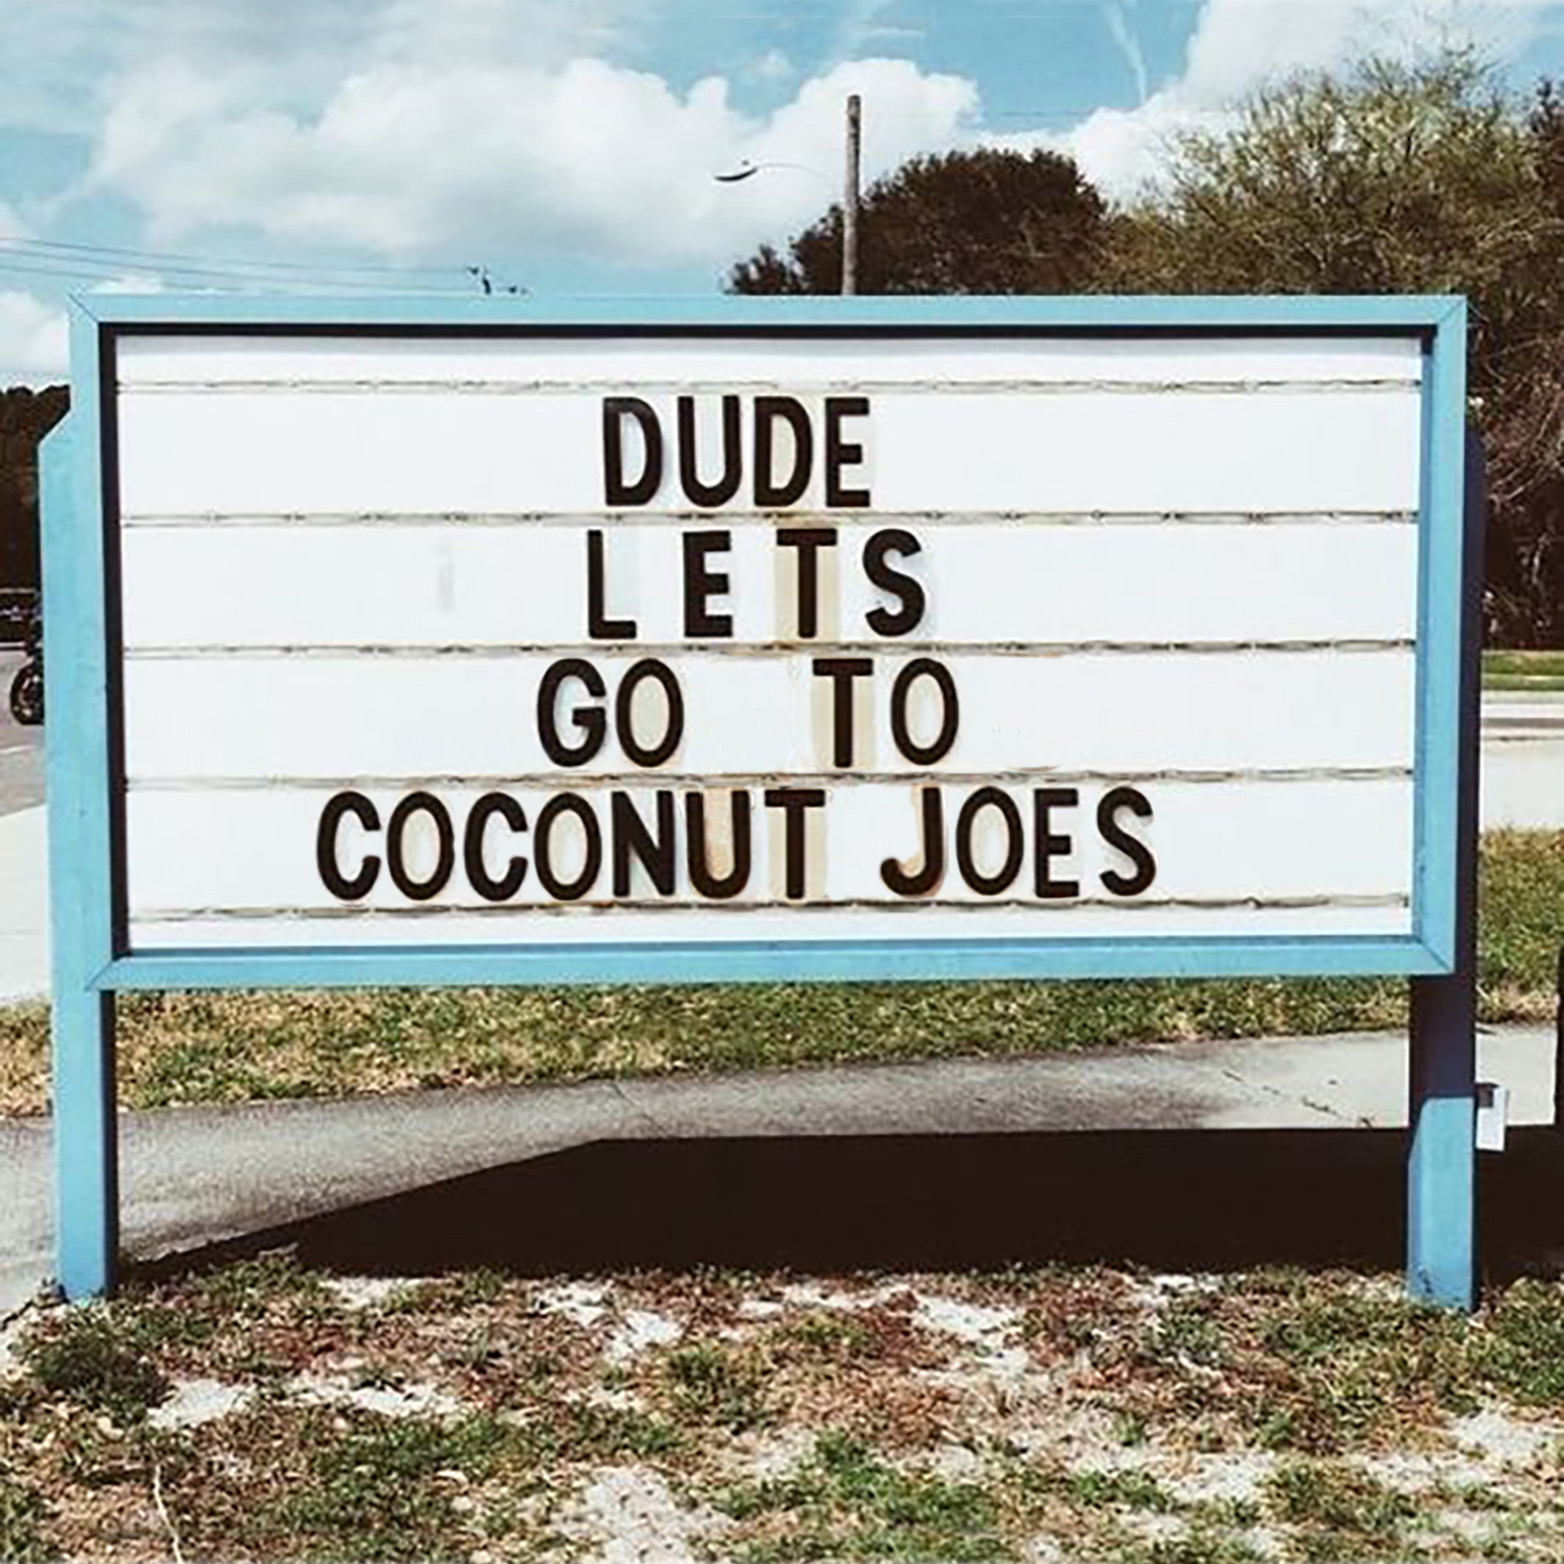 DUDE
LETS
GO TO
COCONUT JOES